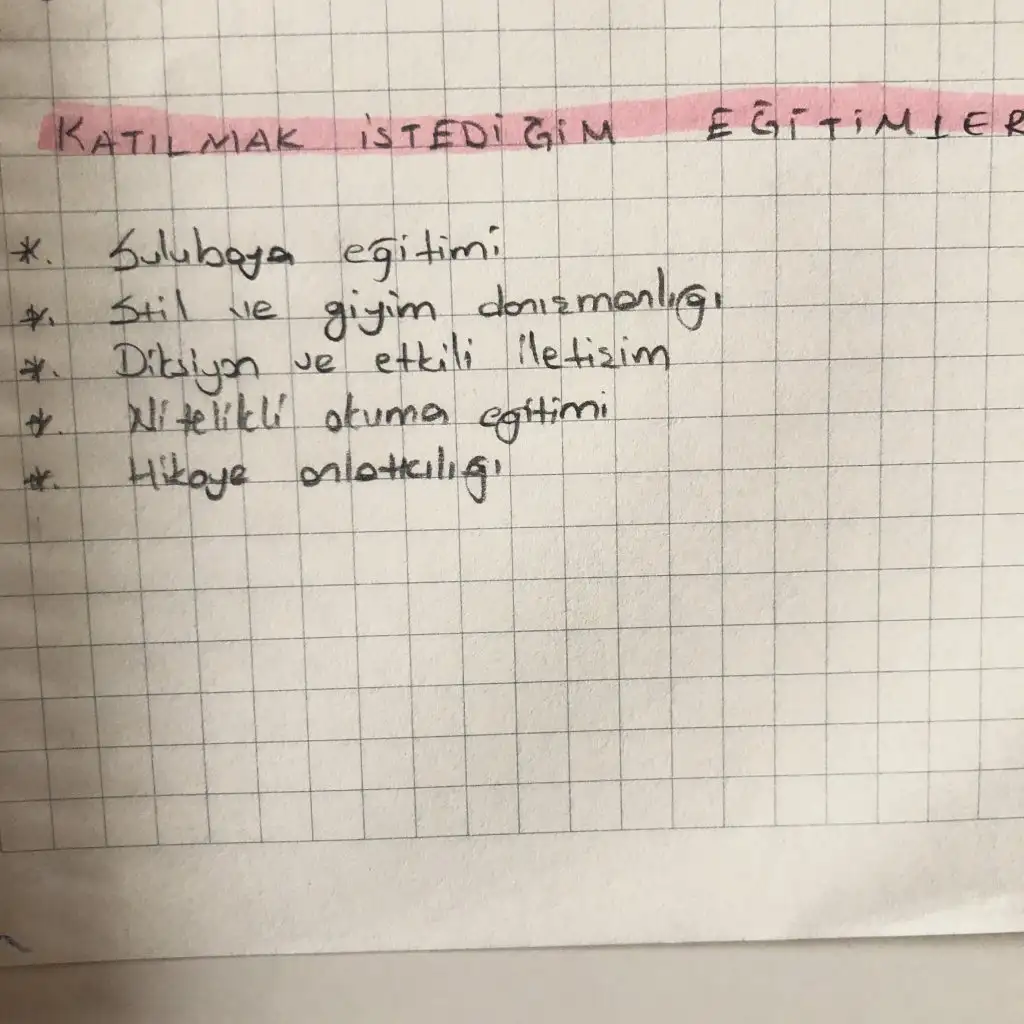 KATILMAK İSTEDİĞİM EĞİTİMLER
*. Suluboya eğitimi
*. Stil ve giyim danışmanlığı
*. Diksiyon ve etkili iletişim
*. Nitelikli okuma eğitimi
*. Hikaye anlatıcılığı